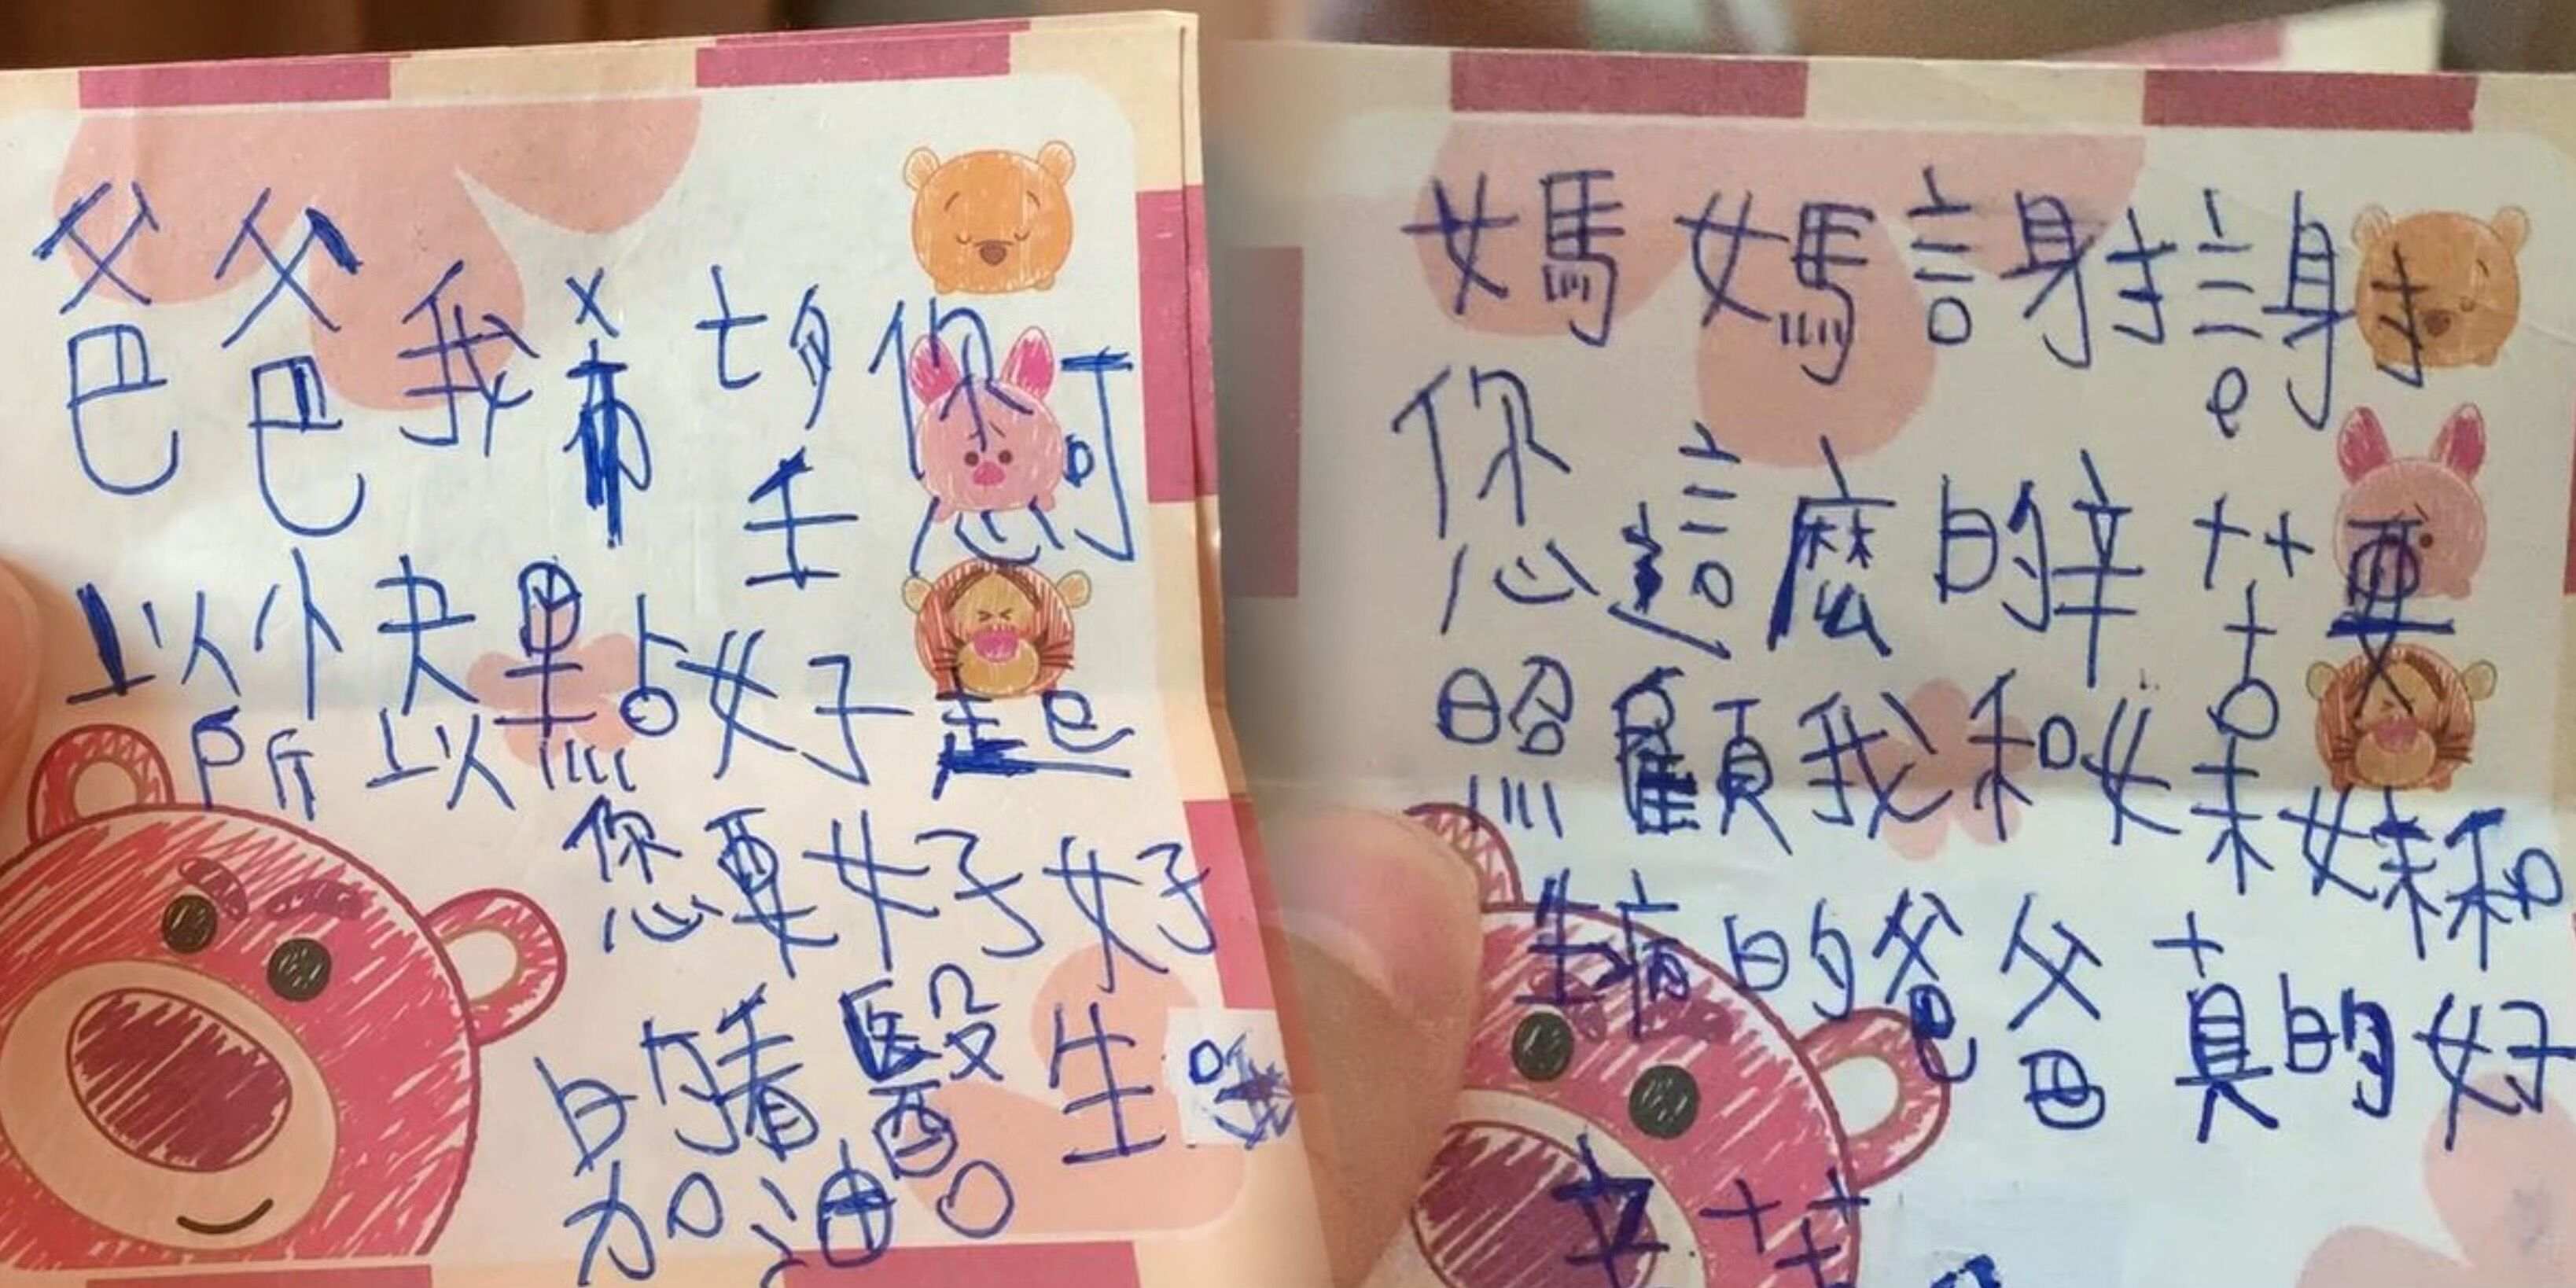 爸爸我希望您可
以快點好起
所以您要好好
的看醫生
加油。
媽媽謝謝
您這麼的辛苦要
照顧我和妹妹和
生病的爸爸真的好
辛苦